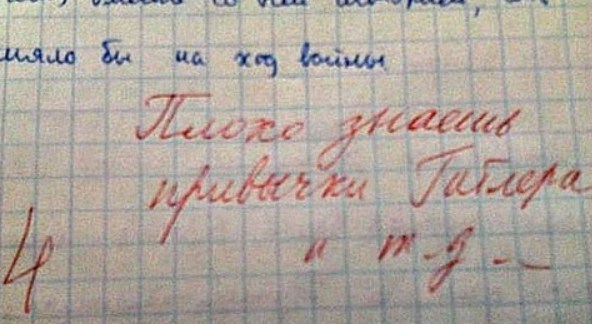 мяло бы на ход войны
Плохо знаешь
привычки Гитлера
и т.д.
4